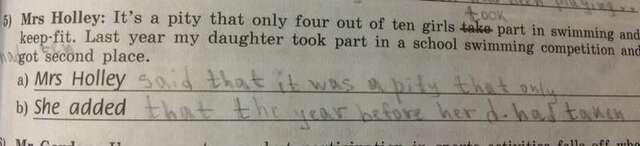 took
5) Mrs Holley: It's a pity that only four out of ten girls take part in swimming and
keep-fit. Last year my daughter took part in a school swimming competition and
got second place.
a) Mrs Holley said that it was a pity that only
b) She added that the year before her d. had taken